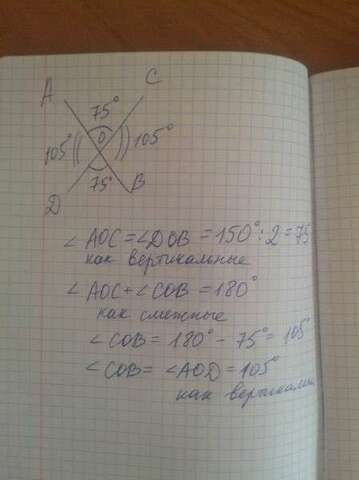 A
C
75°
105°
O
105°
75°
D
B
∠ AOC = ∠DOB = 150° : 2 = 75
как вертикальные
∠ AOC + ∠COB = 180°
как смежные
∠ COB = 180° - 75° = 105°
∠ COB = ∠AOD = 105°
как вертикальн